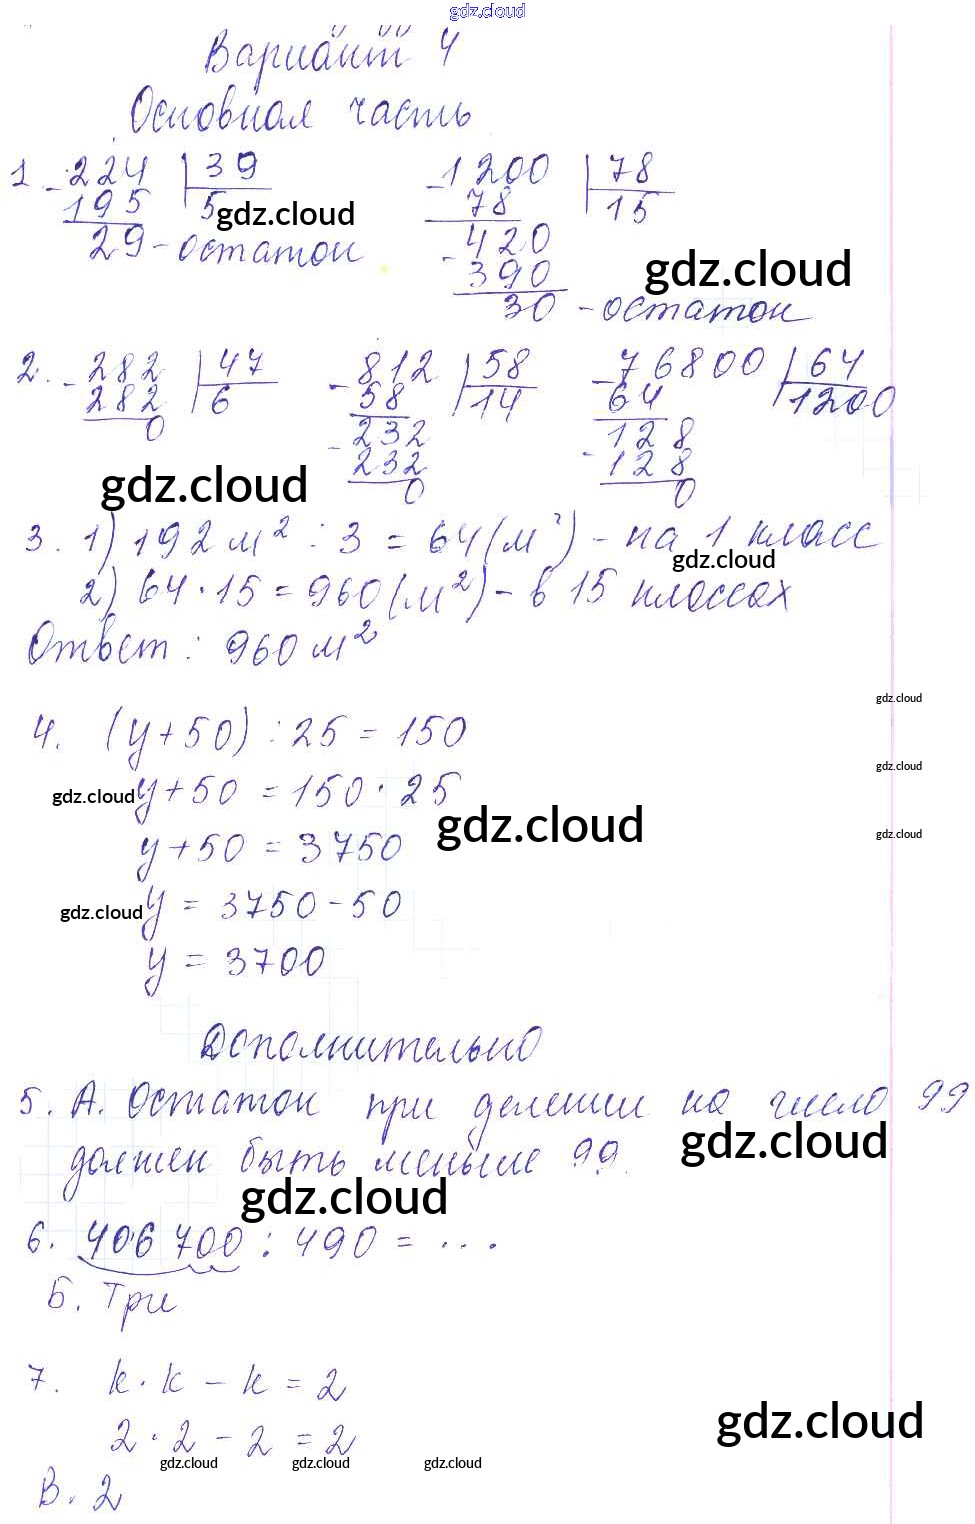 gdz.cloud
Вариант 4
Основная часть
1 - 224 | 39
195 | 5
29 - остаток
- 1200 | 78
78 | 15
- 420
390
30 - остаток
gdz.cloud
gdz.cloud
2. - 282 | 47
282 | 6
0
- 812 | 58
58 | 14
- 232
232
0
- 76800 | 64
64 | 1200
- 128
128
0
gdz.cloud
3. 1) 192 м² : 3 = 64 (м²) - на 1 класс
gdz.cloud
2) 64 · 15 = 960 (м²) - в 15 классах
Ответ: 960 м²
gdz.cloud
4. (y + 50) : 25 = 150
gdz.cloud
gdz.cloud y + 50 = 150 · 25
gdz.cloud
gdz.cloud
y + 50 = 3750
gdz.cloud y = 3750 - 50
y = 3700
Дополнительно
5. А. Остаток при делении на число 99
должен быть меньше 99.
gdz.cloud
gdz.cloud
6. 406 700 : 490 = ...
Б. Три
7. k · k - k = 2
gdz.cloud
2 · 2 - 2 = 2
gdz.cloud gdz.cloud gdz.cloud
В. 2